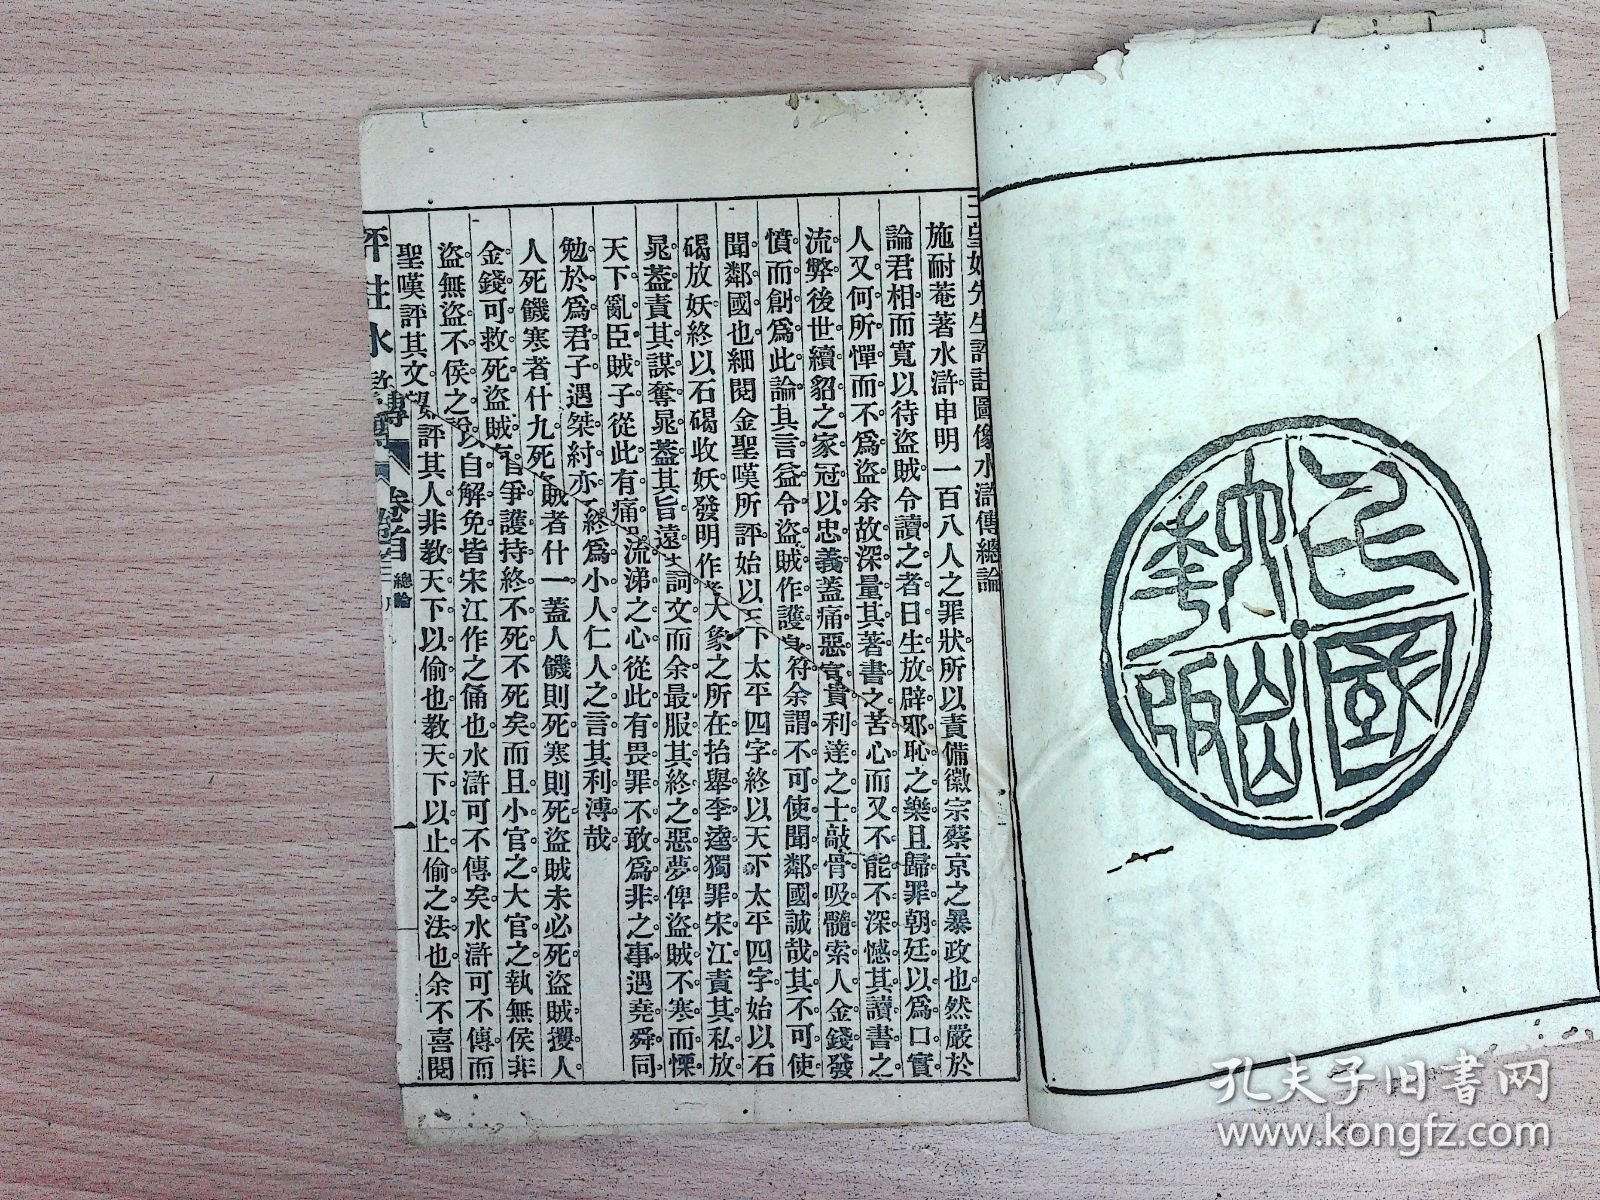 王望如先生評註圖像水滸傳總論
施耐菴著水滸申明一百八人之罪狀所以責備徽宗蔡京之暴政也然嚴於
論君相而寬以待盜賊令讀之者日生放辟邪恥之樂且歸罪朝廷以爲口實
人又何所憚而不爲盜余故深量其著書之苦心而又不能不深憾其讀書之
流弊後世續貂之家冠以忠義蓋痛惡富貴利達之士敲骨吸髓索人金錢發
憤而創爲此論其言益令盜賊作護身符余謂不可使聞鄰國誠哉其不可使
聞鄰國也細閱金聖嘆所評始以天下太平四字終以天下太平四字始以石
碣放妖終以石碣收妖發明作者大象之所在抬舉李逵獨罪宋江責其私放
晁蓋責其謀奪晁蓋其旨遠其詞文而余最服其終之惡夢俾盜賊不寒而慄
天下亂臣賊子從此有痛哭流涕之心從此有畏罪不敢爲非之事遇堯舜同
勉於爲君子遇桀紂亦不終爲小人仁人之言其利溥哉
人死饑寒者什九死盜賊者什一蓋人饑則死寒則死盜賊未必死盜賊攫人
金錢可救死盜賊有爭護持終不死不死矣而且小官之大官之執無侯非
盜無盜不侯之說以自解免皆宋江作之俑也水滸可不傳矣水滸可不傳而
聖嘆評其文望如評其人非教天下以偷也教天下以止偷之法也余不喜閱
評註水滸傳 卷首 總論 一
孔夫子旧書网
www.kongfz.com